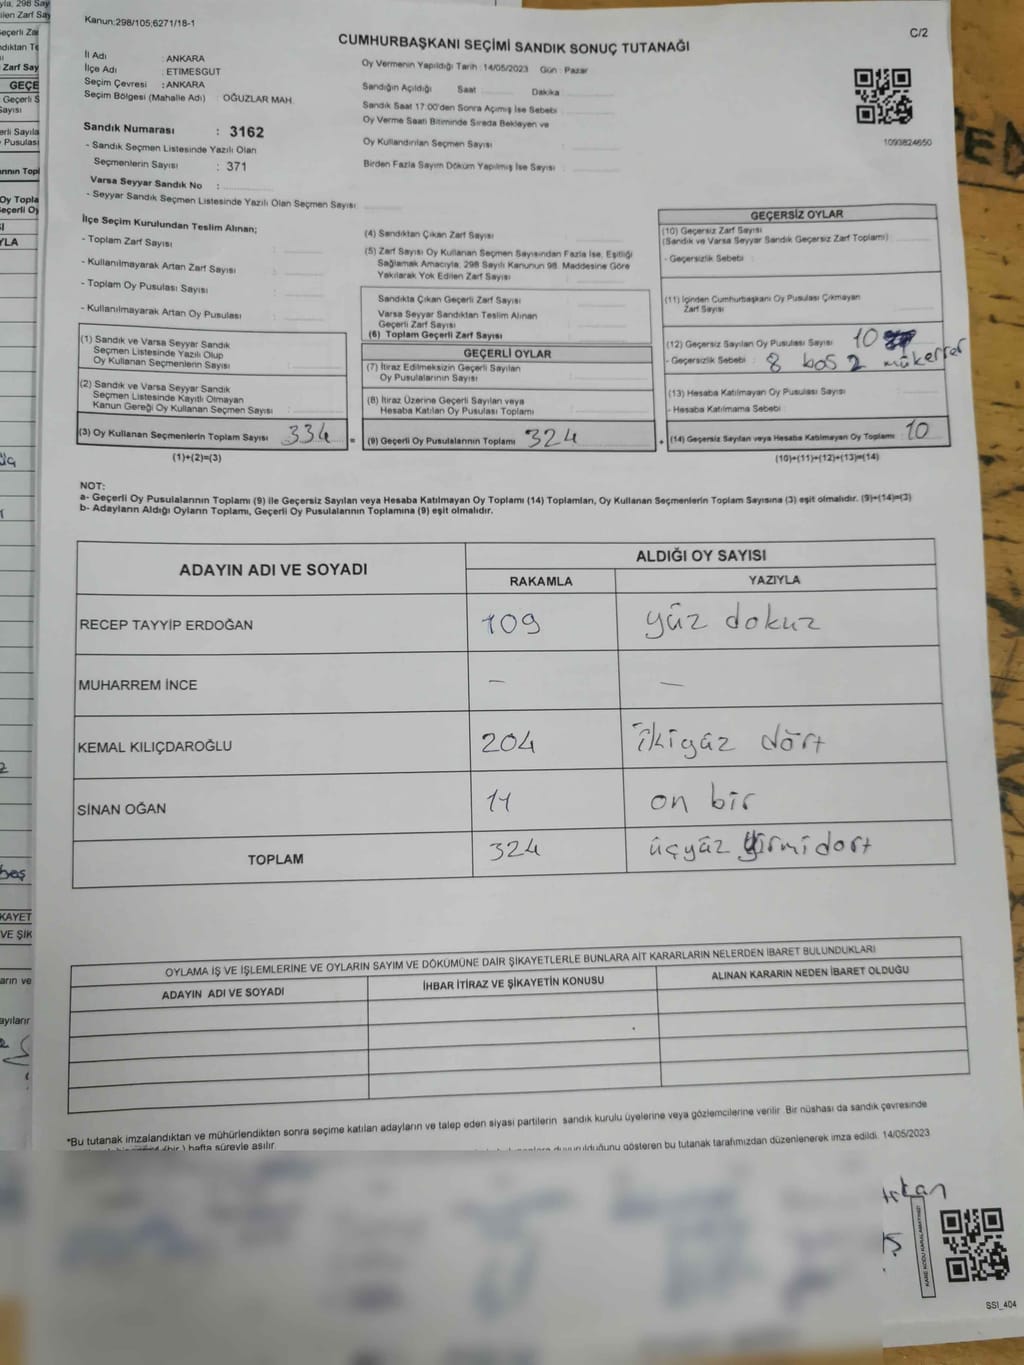 Kanun:298/105;6271/18-1
C/2
CUMHURBAŞKANI SEÇİMİ SANDIK SONUÇ TUTANAĞI
İl Adı : ANKARA
İlçe Adı : ETİMESGUT
Seçim Çevresi : ANKARA
Seçim Bölgesi (Mahalle Adı) : OĞUZLAR MAH.
Sandık Numarası : 3162
- Sandık Seçmen Listesinde Yazılı Olan
Seçmenlerin Sayısı : 371
Varsa Seyyar Sandık No :
- Seyyar Sandık Seçmen Listesinde Yazılı Olan Seçmen Sayısı:
Oy Vermenin Yapıldığı Tarih :14/05/2023 Gün : Pazar
Sandığın Açıldığı Saat Dakika
Sandık Saat 17:00'den Sonra Açılmış İse Sebebi :
Oy Verme Saati Bitiminde Sırada Bekleyen ve
Oy Kullandırılan Seçmen Sayısı :
Birden Fazla Sayım Döküm Yapılmış İse Sayısı :
1093824650
İlçe Seçim Kurulundan Teslim Alınan;
- Toplam Zarf Sayısı :
- Kullanılmayarak Artan Zarf Sayısı :
- Toplam Oy Pusulası Sayısı :
- Kullanılmayarak Artan Oy Pusulası :
(1) Sandık ve Varsa Seyyar Sandık
Seçmen Listesinde Yazılı Olup
Oy Kullanan Seçmenlerin Sayısı :
(2) Sandık ve Varsa Seyyar Sandık
Seçmen Listesinde Kayıtlı Olmayan
Kanun Gereği Oy Kullanan Seçmen Sayısı :
(3) Oy Kullanan Seçmenlerin Toplam Sayısı : 334 =
(1)+(2)=(3)
(4) Sandıktan Çıkan Zarf Sayısı :
(5) Zarf Sayısı Oy Kullanan Seçmen Sayısından Fazla İse, Eşitliği
Sağlamak Amacıyla, 298 Sayılı Kanunun 98. Maddesine Göre
Yakılarak Yok Edilen Zarf Sayısı :
Sandıkta Çıkan Geçerli Zarf Sayısı :
Varsa Seyyar Sandıktan Teslim Alınan
Geçerli Zarf Sayısı :
(6) Toplam Geçerli Zarf Sayısı :
GEÇERLİ OYLAR
(7) İtiraz Edilmeksizin Geçerli Sayılan
Oy Pusulalarının Sayısı :
(8) İtiraz Üzerine Geçerli Sayılan veya
Hesaba Katılan Oy Pusulası Toplamı :
(9) Geçerli Oy Pusulalarının Toplamı : 324 +
GEÇERSİZ OYLAR
(10) Geçersiz Zarf Sayısı
(Sandık ve Varsa Seyyar Sandık Geçersiz Zarf Toplamı) :
- Geçersizlik Sebebi :
(11) İçinden Cumhurbaşkanı Oy Pusulası Çıkmayan
Zarf Sayısı :
(12) Geçersiz Sayılan Oy Pusulası Sayısı : 10
- Geçersizlik Sebebi : 8 boş 2 mükerrer
(13) Hesaba Katılmayan Oy Pusulası Sayısı :
- Hesaba Katılmama Sebebi :
(14) Geçersiz Sayılan veya Hesaba Katılmayan Oy Toplamı : 10
(10)+(11)+(12)+(13)=(14)
NOT:
a- Geçerli Oy Pusulalarının Toplamı (9) ile Geçersiz Sayılan veya Hesaba Katılmayan Oy Toplamı (14) Toplamları, Oy Kullanan Seçmenlerin Toplam Sayısına (3) eşit olmalıdır. (9)+(14)=(3)
b- Adayların Aldığı Oyların Toplamı, Geçerli Oy Pusulalarının Toplamına (9) eşit olmalıdır.
ADAYIN ADI VE SOYADI ALDIĞI OY SAYISI
RAKAMLA YAZIYLA
RECEP TAYYİP ERDOĞAN 109 yüz dokuz
MUHARREM İNCE — —
KEMAL KILIÇDAROĞLU 204 ikiyüz dört
SİNAN OĞAN 11 on bir
TOPLAM 324 üçyüz yirmidört
OYLAMA İŞ VE İŞLEMLERİNE VE OYLARIN SAYIM VE DÖKÜMÜNE DAİR ŞİKAYETLERLE BUNLARA AİT KARARLARIN NELERDEN İBARET BULUNDUKLARI
ADAYIN ADI VE SOYADI İHBAR İTİRAZ VE ŞİKAYETİN KONUSU ALINAN KARARIN NEDEN İBARET OLDUĞU
*Bu tutanak imzalandıktan ve mühürlendikten sonra seçime katılan adayların ve talep eden siyasi partilerin sandık kurulu üyelerine veya gözlemcilerine verilir. Bir nüshası da sandık çevresinde
hafta süreyle asılır. gösteren bu tutanak tarafımızdan düzenlenerek imza edildi. 14/05/2023
SSI_404